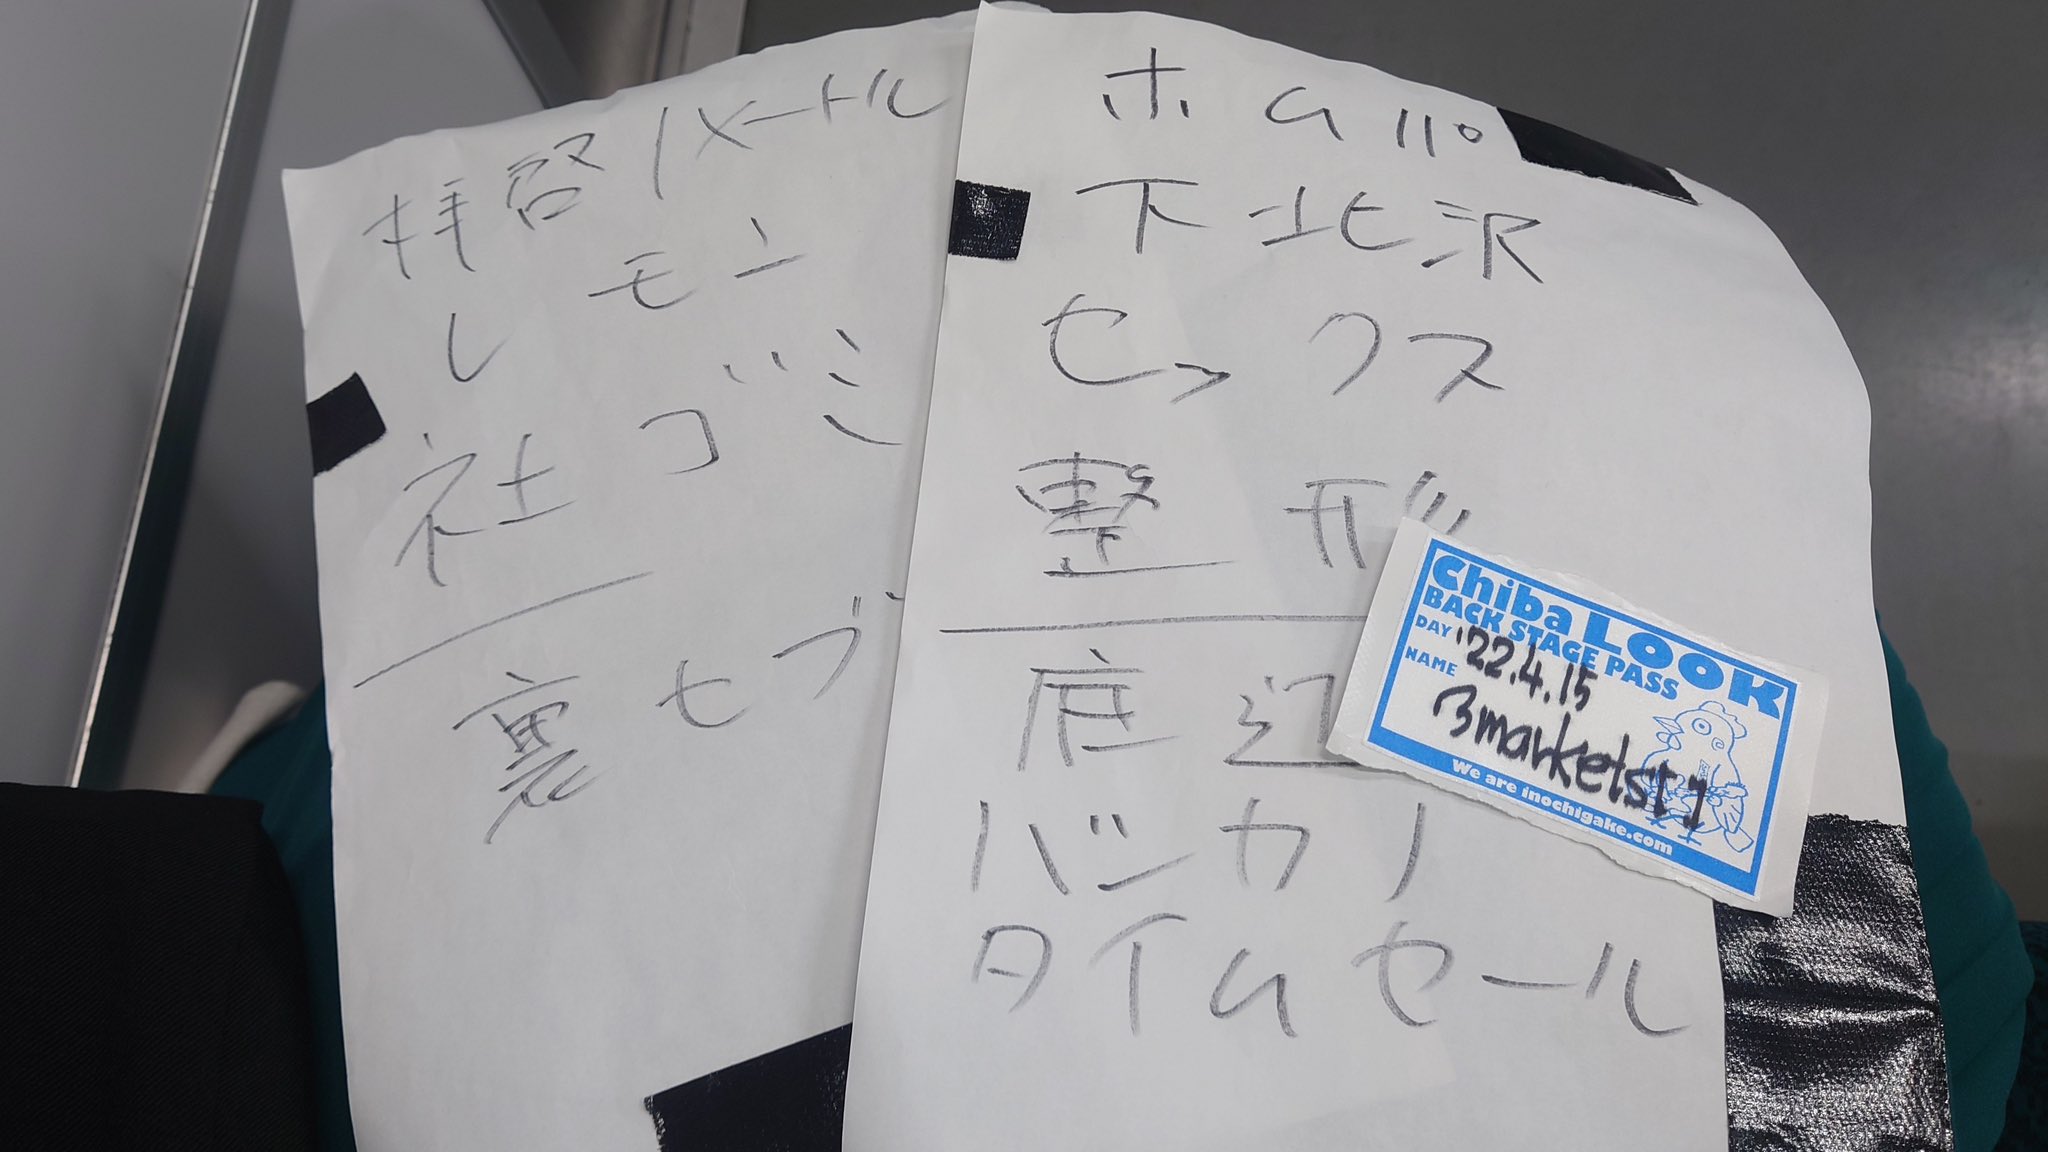 拝啓1メートル
レモン
社ゴミ
裏セブ
ホムパ
下北沢
セックス
整形
底辺
バンカー
タイムセール
Chiba LOOK
BACK STAGE PASS
DAY '22.4.15
NAME 3markets[ ]
We are inochigake.com